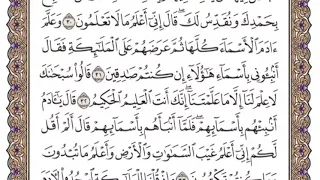 بِحَمْدِكَ وَنُقَدِّسُ لَكَ ۖ قَالَ إِنِّي أَعْلَمُ مَا لَا تَعْلَمُونَ ٣٠ وَعَلَّمَ
ءَادَمَ الْأَسْمَاءَ كُلَّهَا ثُمَّ عَرَضَهُمْ عَلَى الْمَلَٰئِكَةِ فَقَالَ
أَنۢبِئُونِي بِأَسْمَاءِ هَٰؤُلَاءِ إِن كُنتُمْ صَٰدِقِينَ ٣١ قَالُوا سُبْحَٰنَكَ
لَا عِلْمَ لَنَا إِلَّا مَا عَلَّمْتَنَا ۖ إِنَّكَ أَنتَ الْعَلِيمُ الْحَكِيمُ ٣٢ قَالَ يَٰٓـَٔادَمُ
أَنۢبِئْهُم بِأَسْمَائِهِمْ ۖ فَلَمَّا أَنۢبَأَهُم بِأَسْمَائِهِمْ قَالَ أَلَمْ أَقُل
لَّكُمْ إِنِّي أَعْلَمُ غَيْبَ السَّمَٰوَٰتِ وَالْأَرْضِ وَأَعْلَمُ مَا تُبْدُونَ